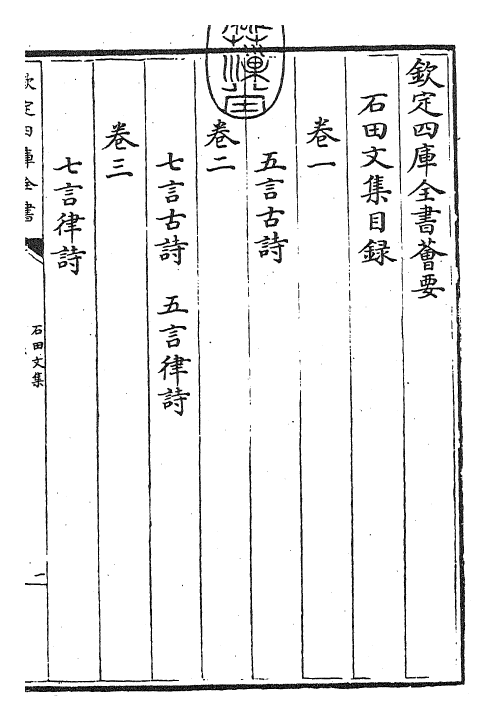 欽定四庫全書薈要
石田文集目録
卷一
五言古詩
卷二
七言古詩 五言律詩
卷三
七言律詩
欽定四庫全書
石田文集
一